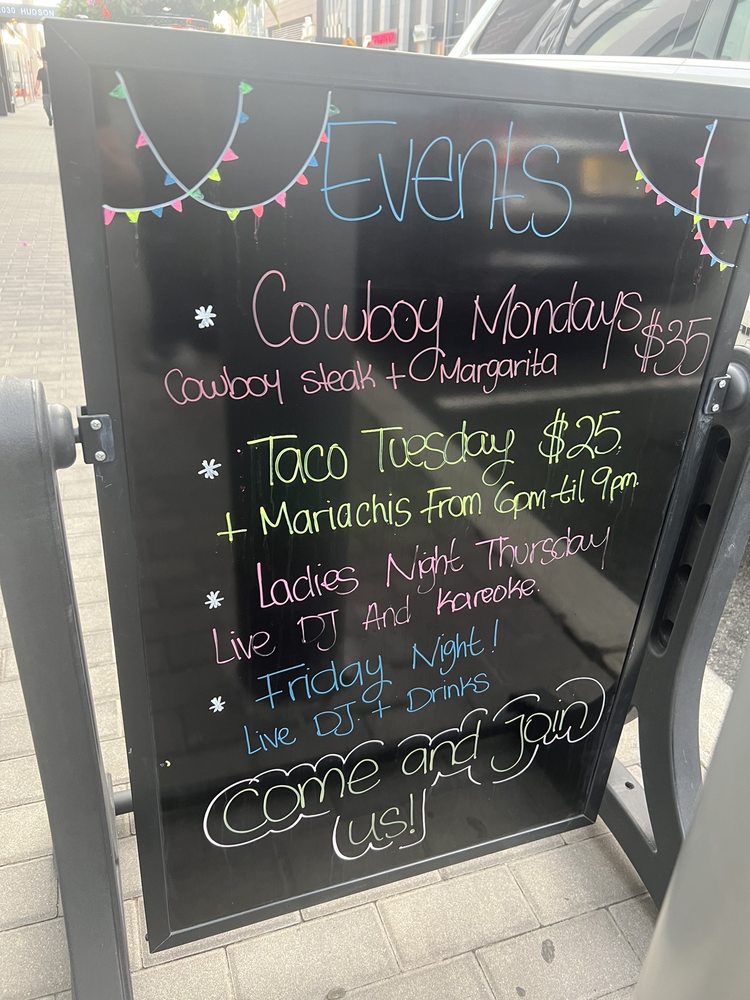 030 HUDSON
Events
* Cowboy Mondays $35
Cowboy steak + Margarita
* Taco Tuesday $25
+ Mariachis From 6pm til 9pm.
* Ladies Night Thursday
Live DJ And Kareoke.
* Friday Night!
Live DJ + Drinks
Come and join
us!